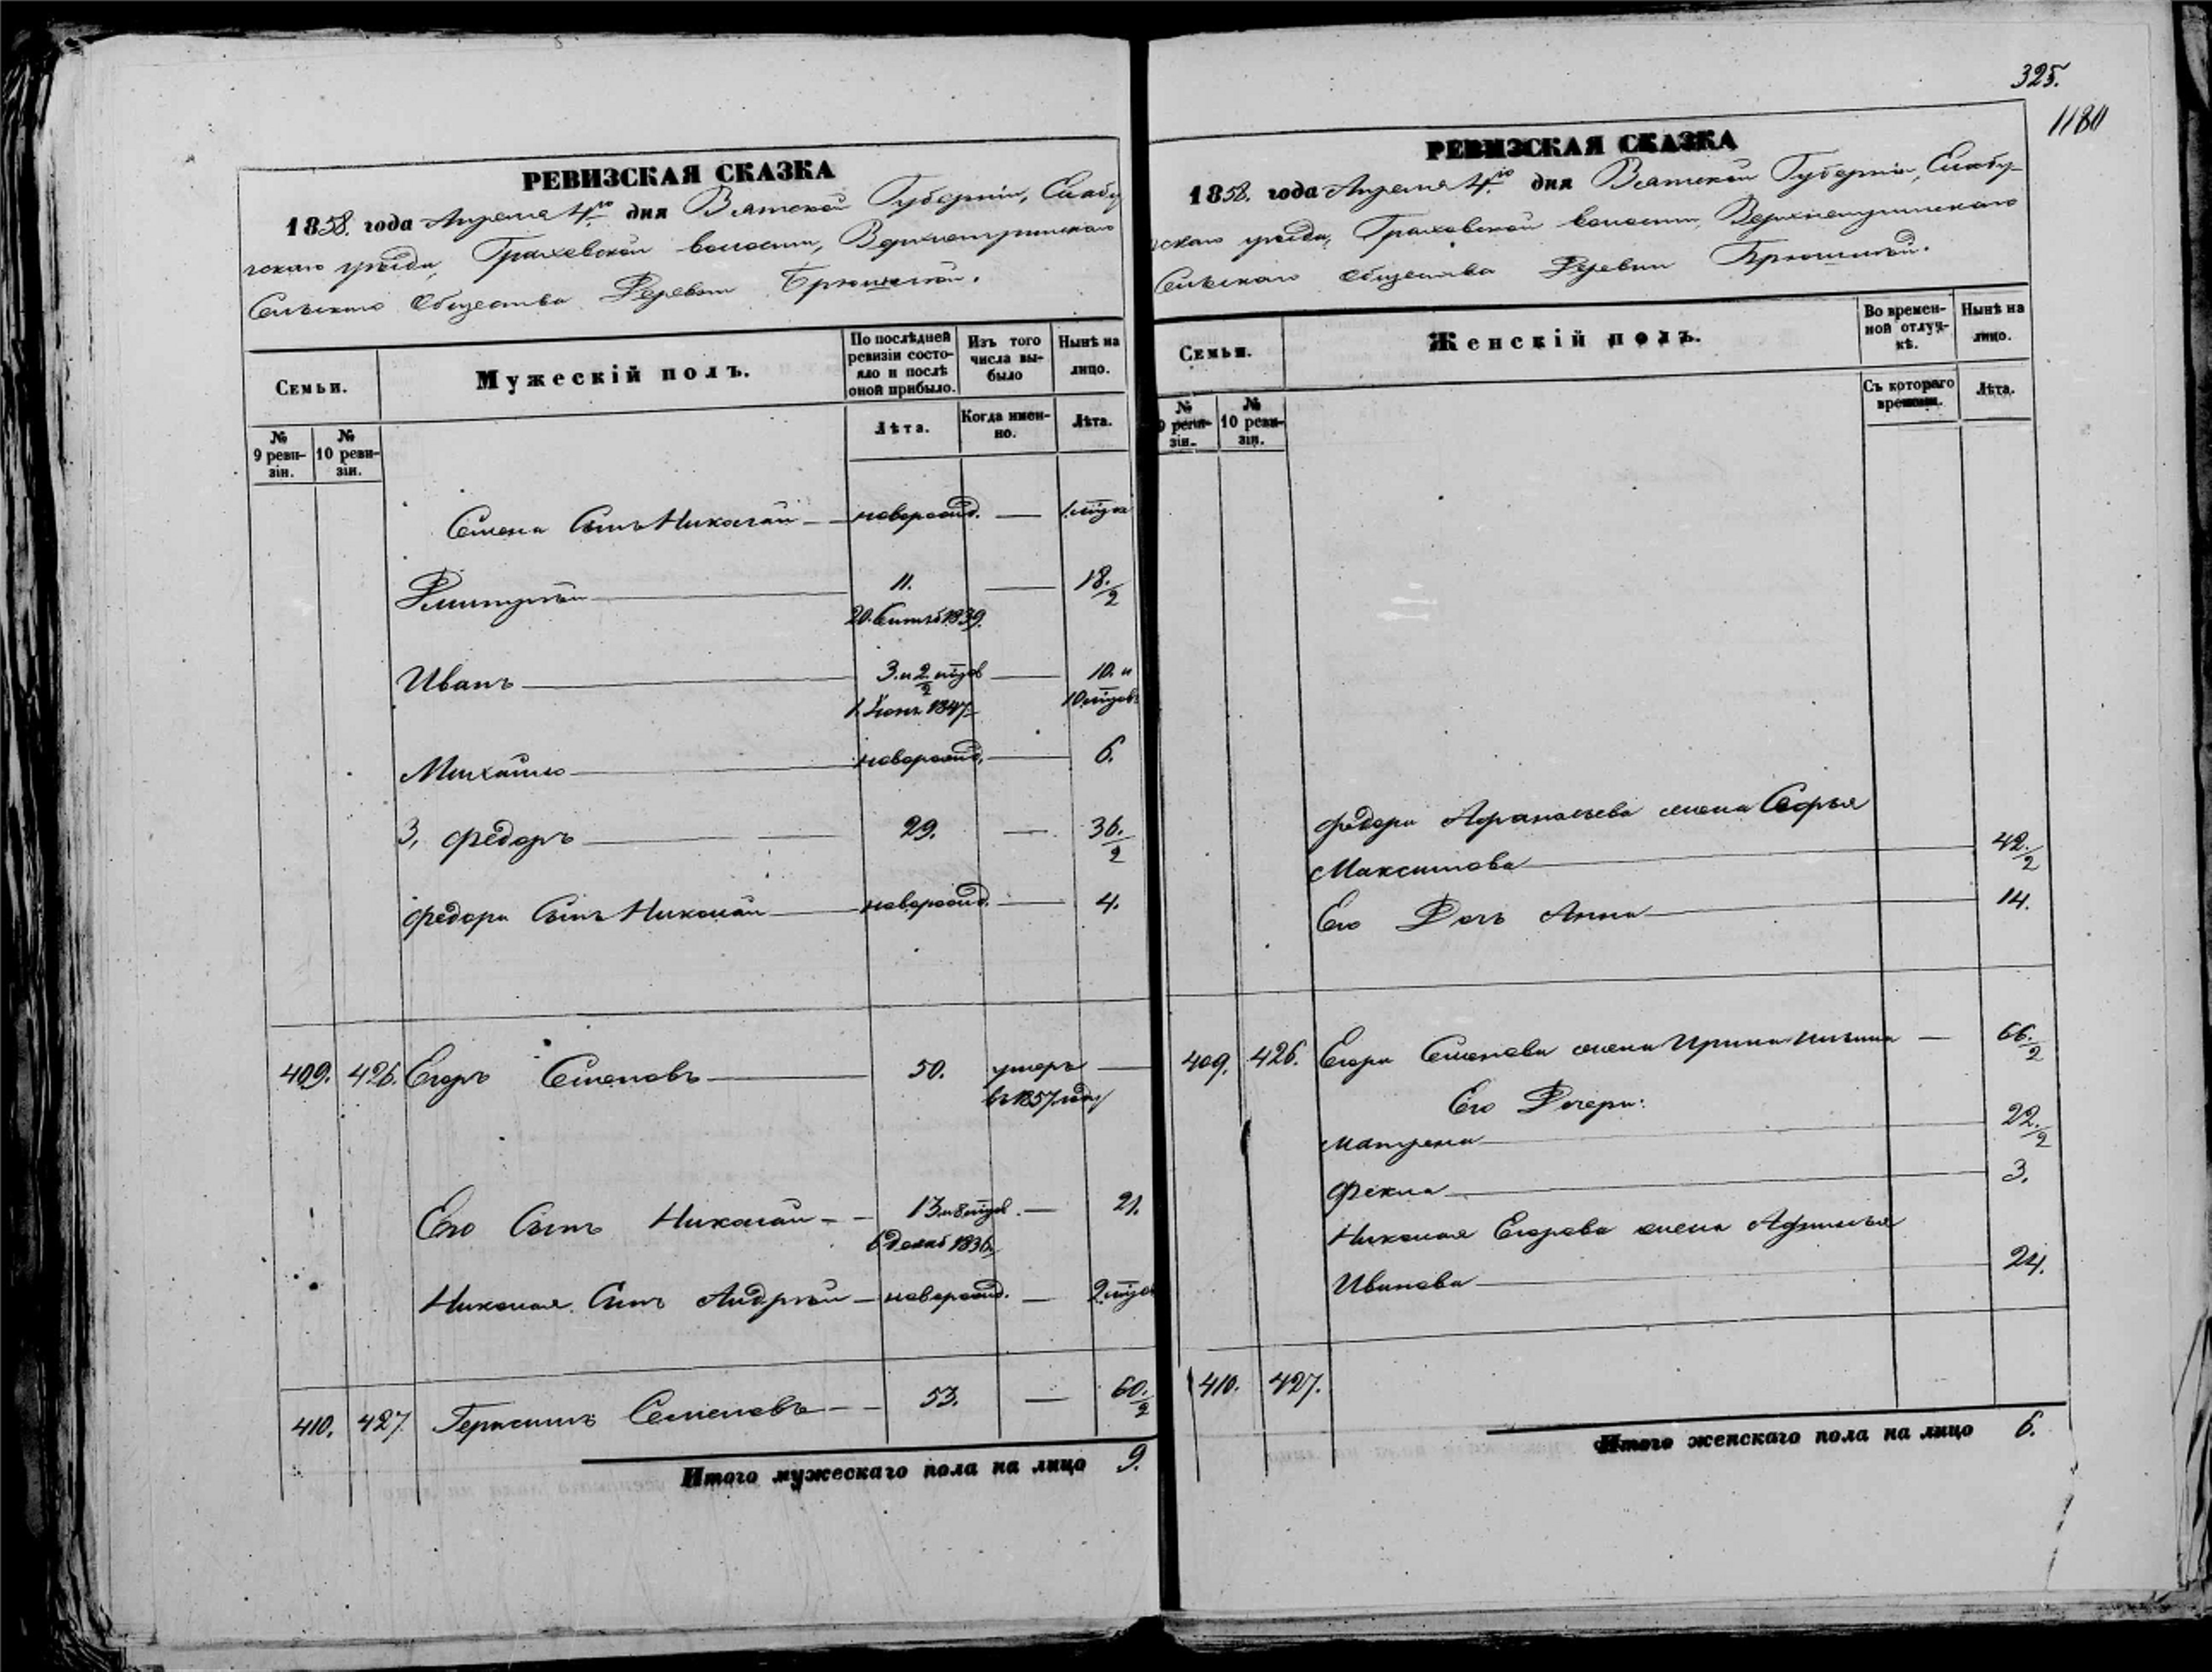 РЕВИЗСКАЯ СКАЗКА
1858. года Апреля 4.го дня Вятской Губернiи, Елабу
гскаго уѣзда, Граховской волости,
Сельскаго Общества Деревни
Семьи.
Мужескiй полъ.
По послѣдней ревизiи состо-
яло и послѣ
оной прибыло.
Изъ того
числа вы-
было
Нынѣ на
лицо.
Лѣта.
Когда имен-
но.
Лѣта.
№
9 реви-
зiи.
№
10 реви-
зiи.
Семена Сынъ Николай — новорожд. — 1. мѣсяц
Дмитрiй — 11. — 18. 1/2
20. Сентяб 1839.
Иванъ — 3. и 2 1/2 мѣсяцов — 10. и
1847. 10 мѣсяцовъ
Михайло — новорожд. — 6.
3, Федоръ — 29. — 36. 1/2
Федора Сынъ Николай — новорожд. — 4.
409. 426. Егоръ Семеновъ — 50. умеръ —
въ 1857 году
Его Сынъ Николай — 13. и 8 мѣсяцов. — 21.
6 Декаб 1836.
Николая Сынъ Андрей — новорожд. — 2 мѣсяц
410. 427. Герасимъ Семеновъ — 53. — 60. 1/2
Итого мужескаго пола на лицо 9.
325.
1180
РЕВИЗСКАЯ СКАЗКА
1858. года Апреля 4.го дня Вятской Губернiи, Елабу-
гскаго уѣзда, Граховской волости,
Сельскаго Общества Деревни
Семьи.
Женскiй полъ.
Во времен-
ной отлуч-
кѣ.
Нынѣ на
лицо.
Съ котораго
времени.
Лѣта.
№
9 реви-
зiи.
№
10 реви-
зiи.
Федора Афанасьева жена Софья
Максимова — 42. 1/2
Его Дочь Анна — 14.
409. 426. Егора Семенова жена Ирина Ильина — 66. 1/2
Его Дочери:
Матрена — 22. 1/2
Фекла — 3.
Николая Егорова жена Афимья
Иванова — 24.
410. 427.
Итого женскаго пола на лицо 6.